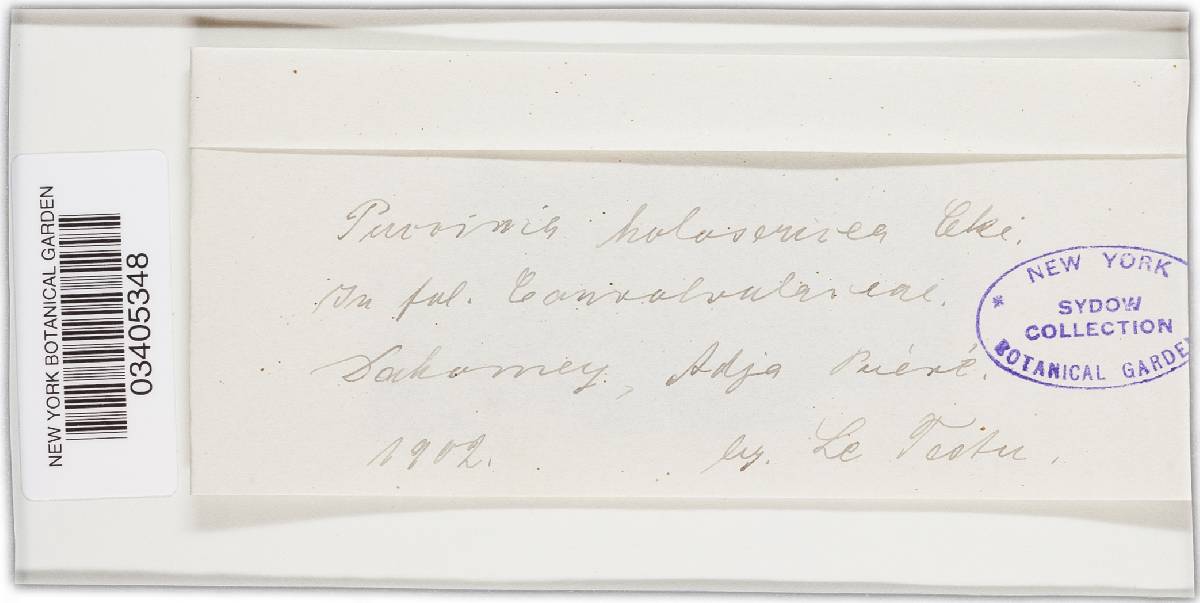 Puccinia holosericea Cke.
In fol. Convolvulaceae.
Dahomey, Adja Ouéré.
1902. leg. Le Testu.
NEW YORK
SYDOW
COLLECTION
BOTANICAL GARDEN
NEW YORK BOTANICAL GARDEN
03405348